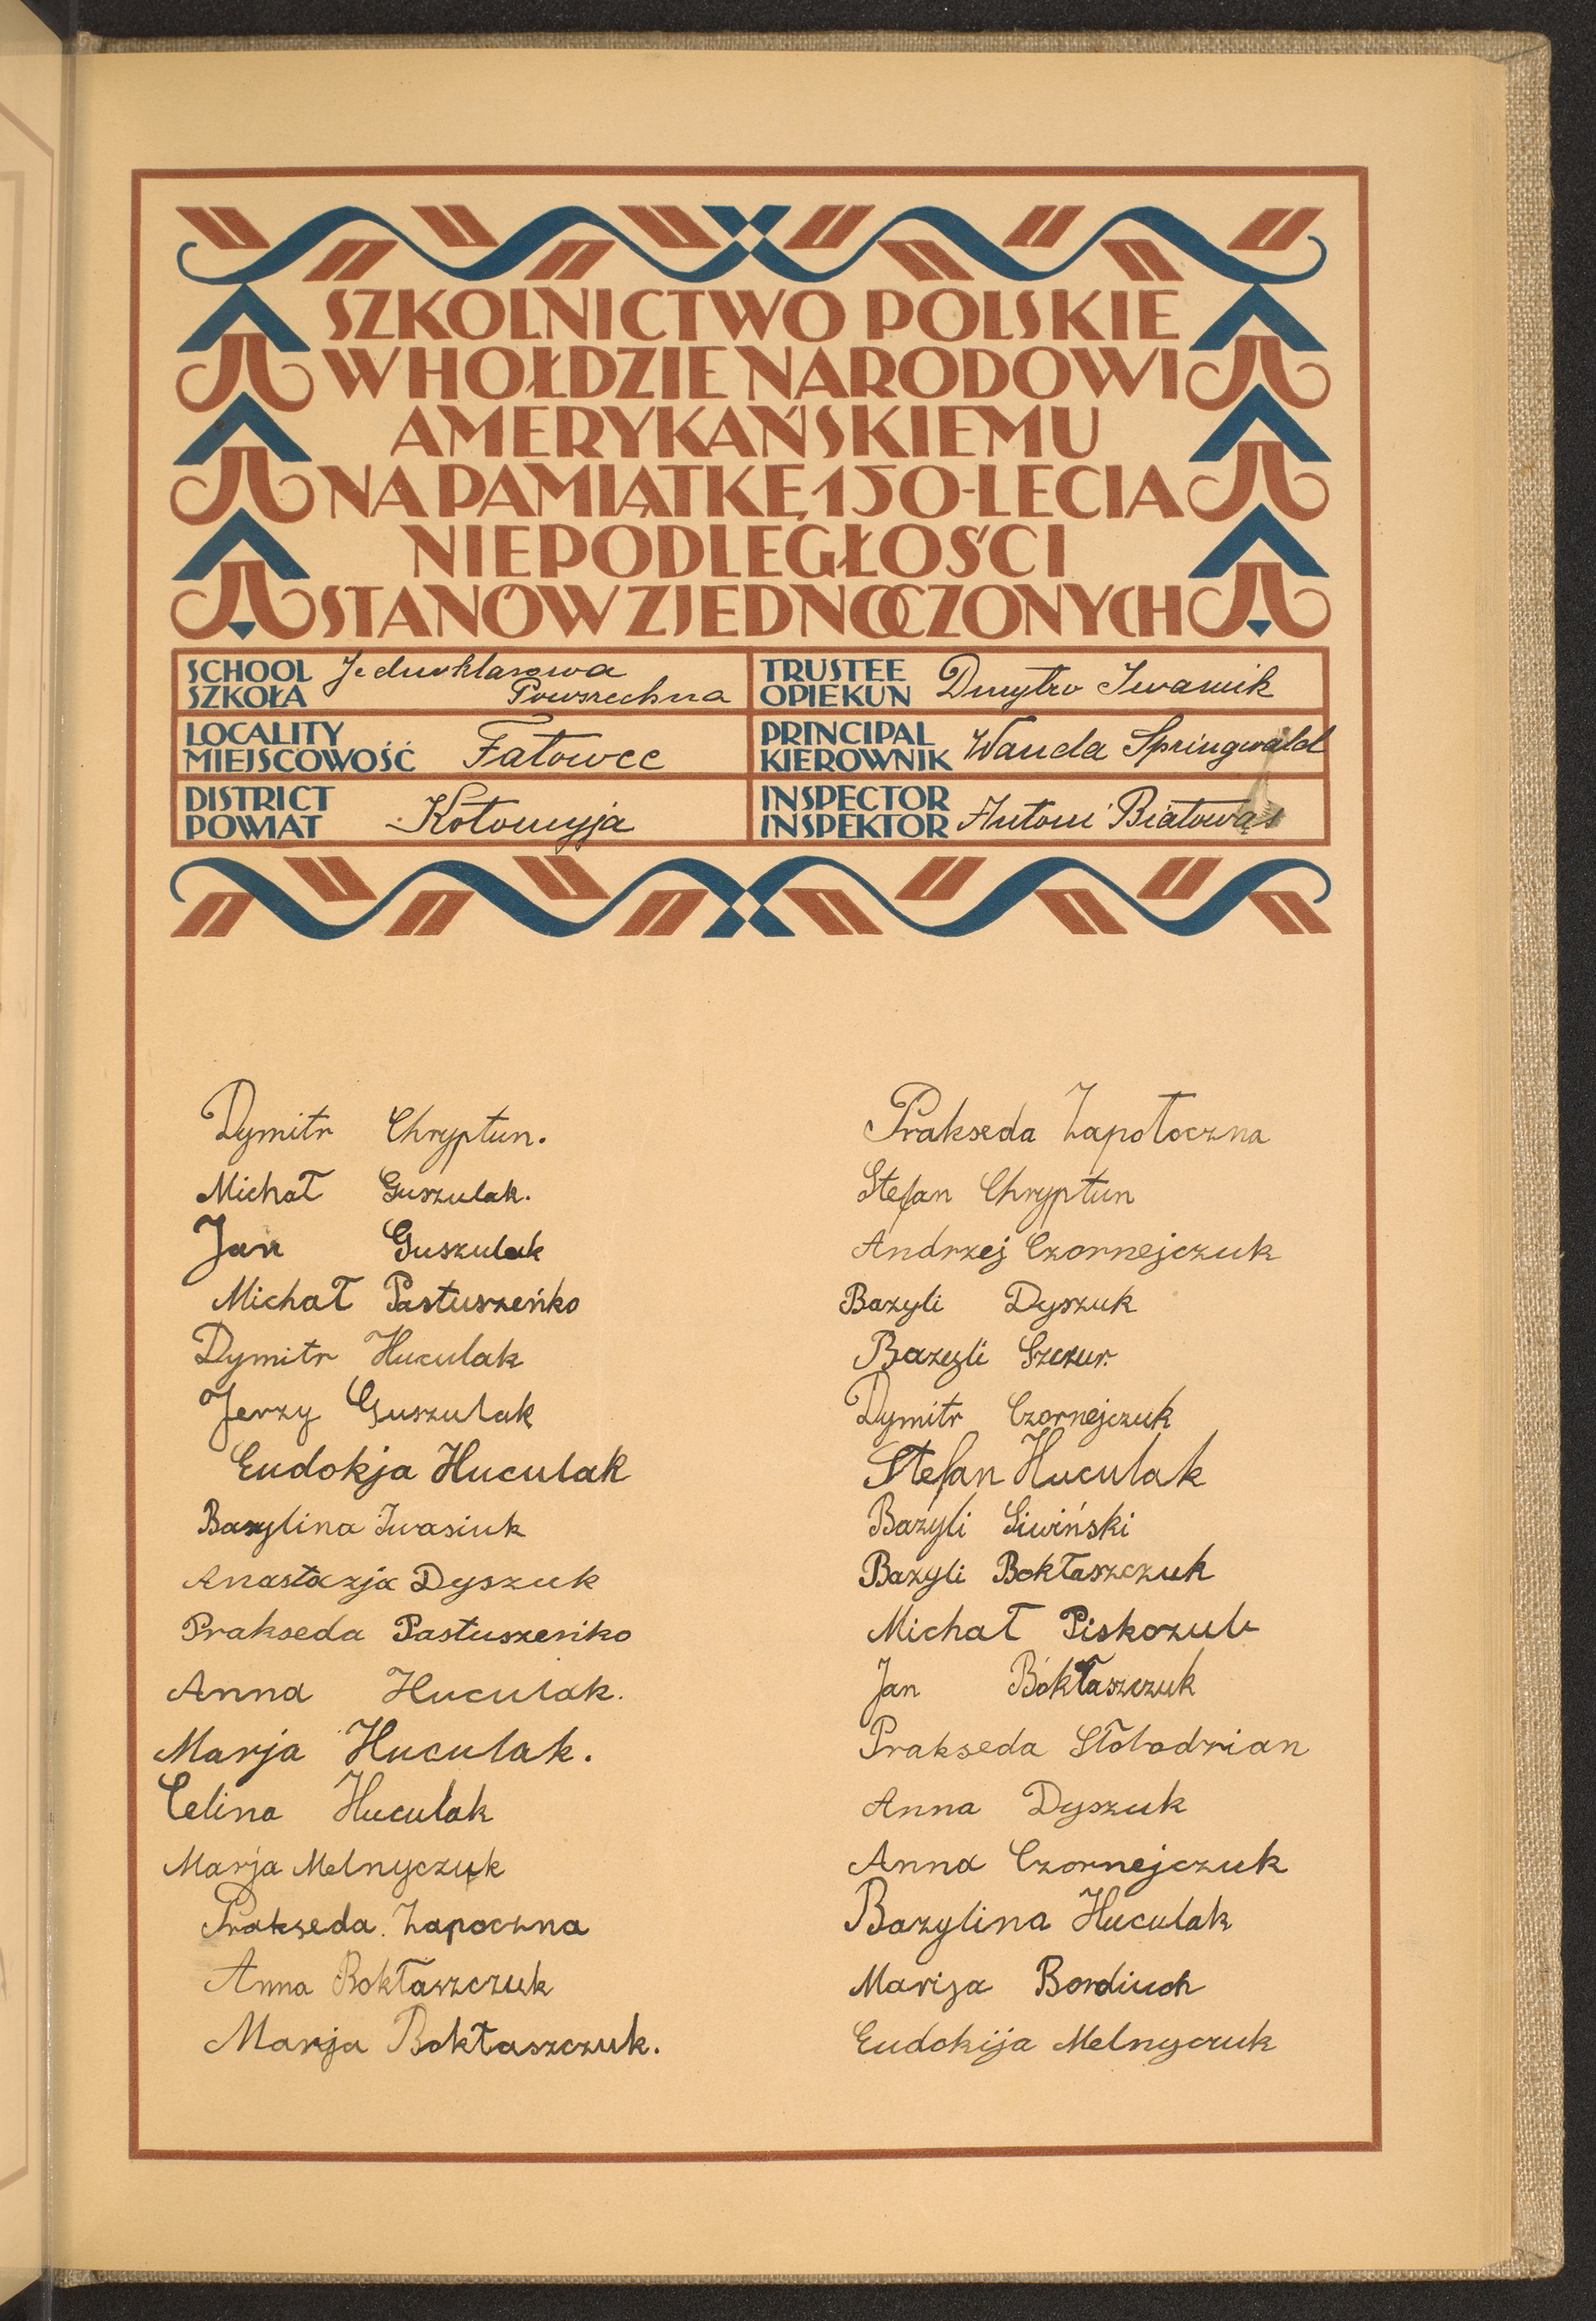 SZKOLNICTWO POLSKIE
W HOŁDZIE NARODOWI
AMERYKAŃSKIEMU
NA PAMIĄTKĘ 150-LECIA
NIEPODLEGŁOŚCI
STANÓW ZJEDNOCZONYCH
SCHOOL
SZKOŁA
Jednoklasowa
Powszechna
TRUSTEE
OPIEKUN
Dmytro Iwasiuik
LOCALITY
MIEJSCOWOŚĆ
Fatowce
PRINCIPAL
KIEROWNIK
Wanda Springwald
DISTRICT
POWIAT
Kołomyja
INSPECTOR
INSPEKTOR
Antoni Białowąs
Dymitr Chryptun.
Michał Guszulak.
Jan Guszulak
Michał Pastuszeńko
Dymitr Huculak
Jerzy Guszulak
Eudokja Huculak
Bazylina Iwasiuk
Anastazja Dyszuk
Prakseda Pastuszeńko
Anna Huculak.
Marja Huculak.
Celina Huculak
Marja Melnyczuk
Prakseda. Zapoczna
Anna Bokłaszczuk
Marja Bokłaszczuk.
Prakseda Zapołoczna
Stefan Chryptun
Andrzej Czornejczuk
Bazyli Dyszuk
Bazyli Szczur.
Dymitr Czornejczuk
Stefan Huculak
Bazyli Siwiński
Bazyli Bokłaszczuk
Michał Piskozub
Jan Bokłaszczuk
Prakseda Słobodzian
Anna Dyszuk
Anna Czornejczuk
Bazylina Huculak
Marija Bordiuch
Eudokija Melnyczuk